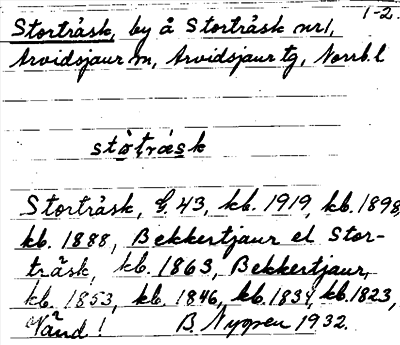 1-2.
Storträsk, by å Storträsk nr1,
Arvidsjaur sn, Arvidsjaur tg, Norrb. l
stòtrǎsk
Storträsk, E. 43, kb. 1919, kb. 1898,
kb. 1888, Bekkertjaur el Stor-
träsk, kb. 1863, Bekkertjaur,
kb. 1853, kb. 1846, kb. 1834, kb. 1823,
Vänd! B. Nygren 1932.